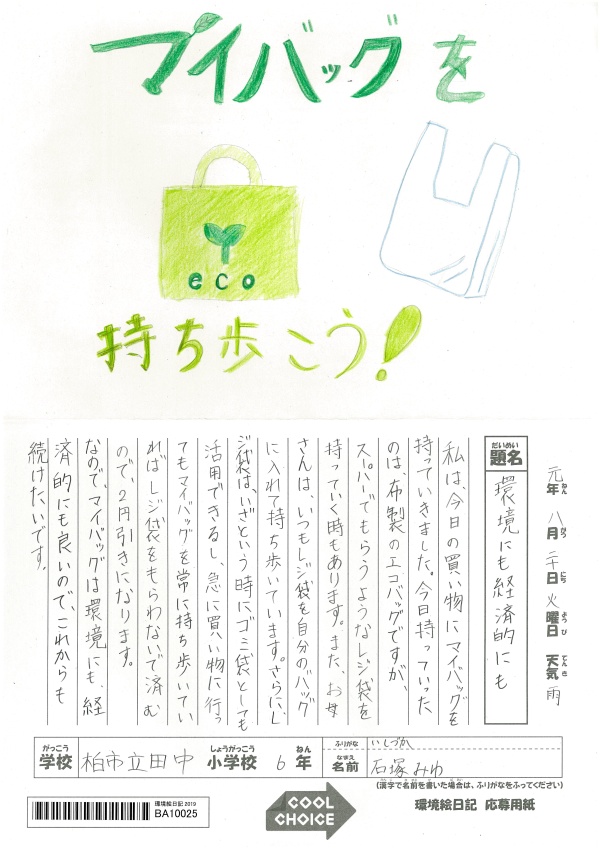 マイバッグを
eco
持ち歩こう!
元年 八月 二十日 火曜日 天気 雨
ねん がつ にち ようび てんき
だいめい
題名 環境にも経済的にも
私は、今日の買い物にマイバッグを
持っていきました。今日持っていった
のは、布製のエコバッグですが、
スーパーでもらうようなレジ袋を
持っていく時もあります。また、お母
さんは、いつもレジ袋を自分のバッグ
に入れて持ち歩いています。さらに、レ
ジ袋は、いざという時にゴミ袋としても
活用できるし、急に買い物に行っ
てもマイバッグを常に持ち歩いてい
ればレジ袋をもらわないで済む
ので、2円引きになります。
なので、マイバッグは環境にも、経
済的にも良いので、これからも
続けたいです。
がっこう しょうがっこう ねん
学校 柏市立田中 小学校 6年
ふりがな いしづか
なまえ
名前 石塚みゆ
(漢字で名前を書いた場合は、ふりがなをふってください)
環境絵日記 2019
BA10025
COOL
CHOICE
環境絵日記 応募用紙